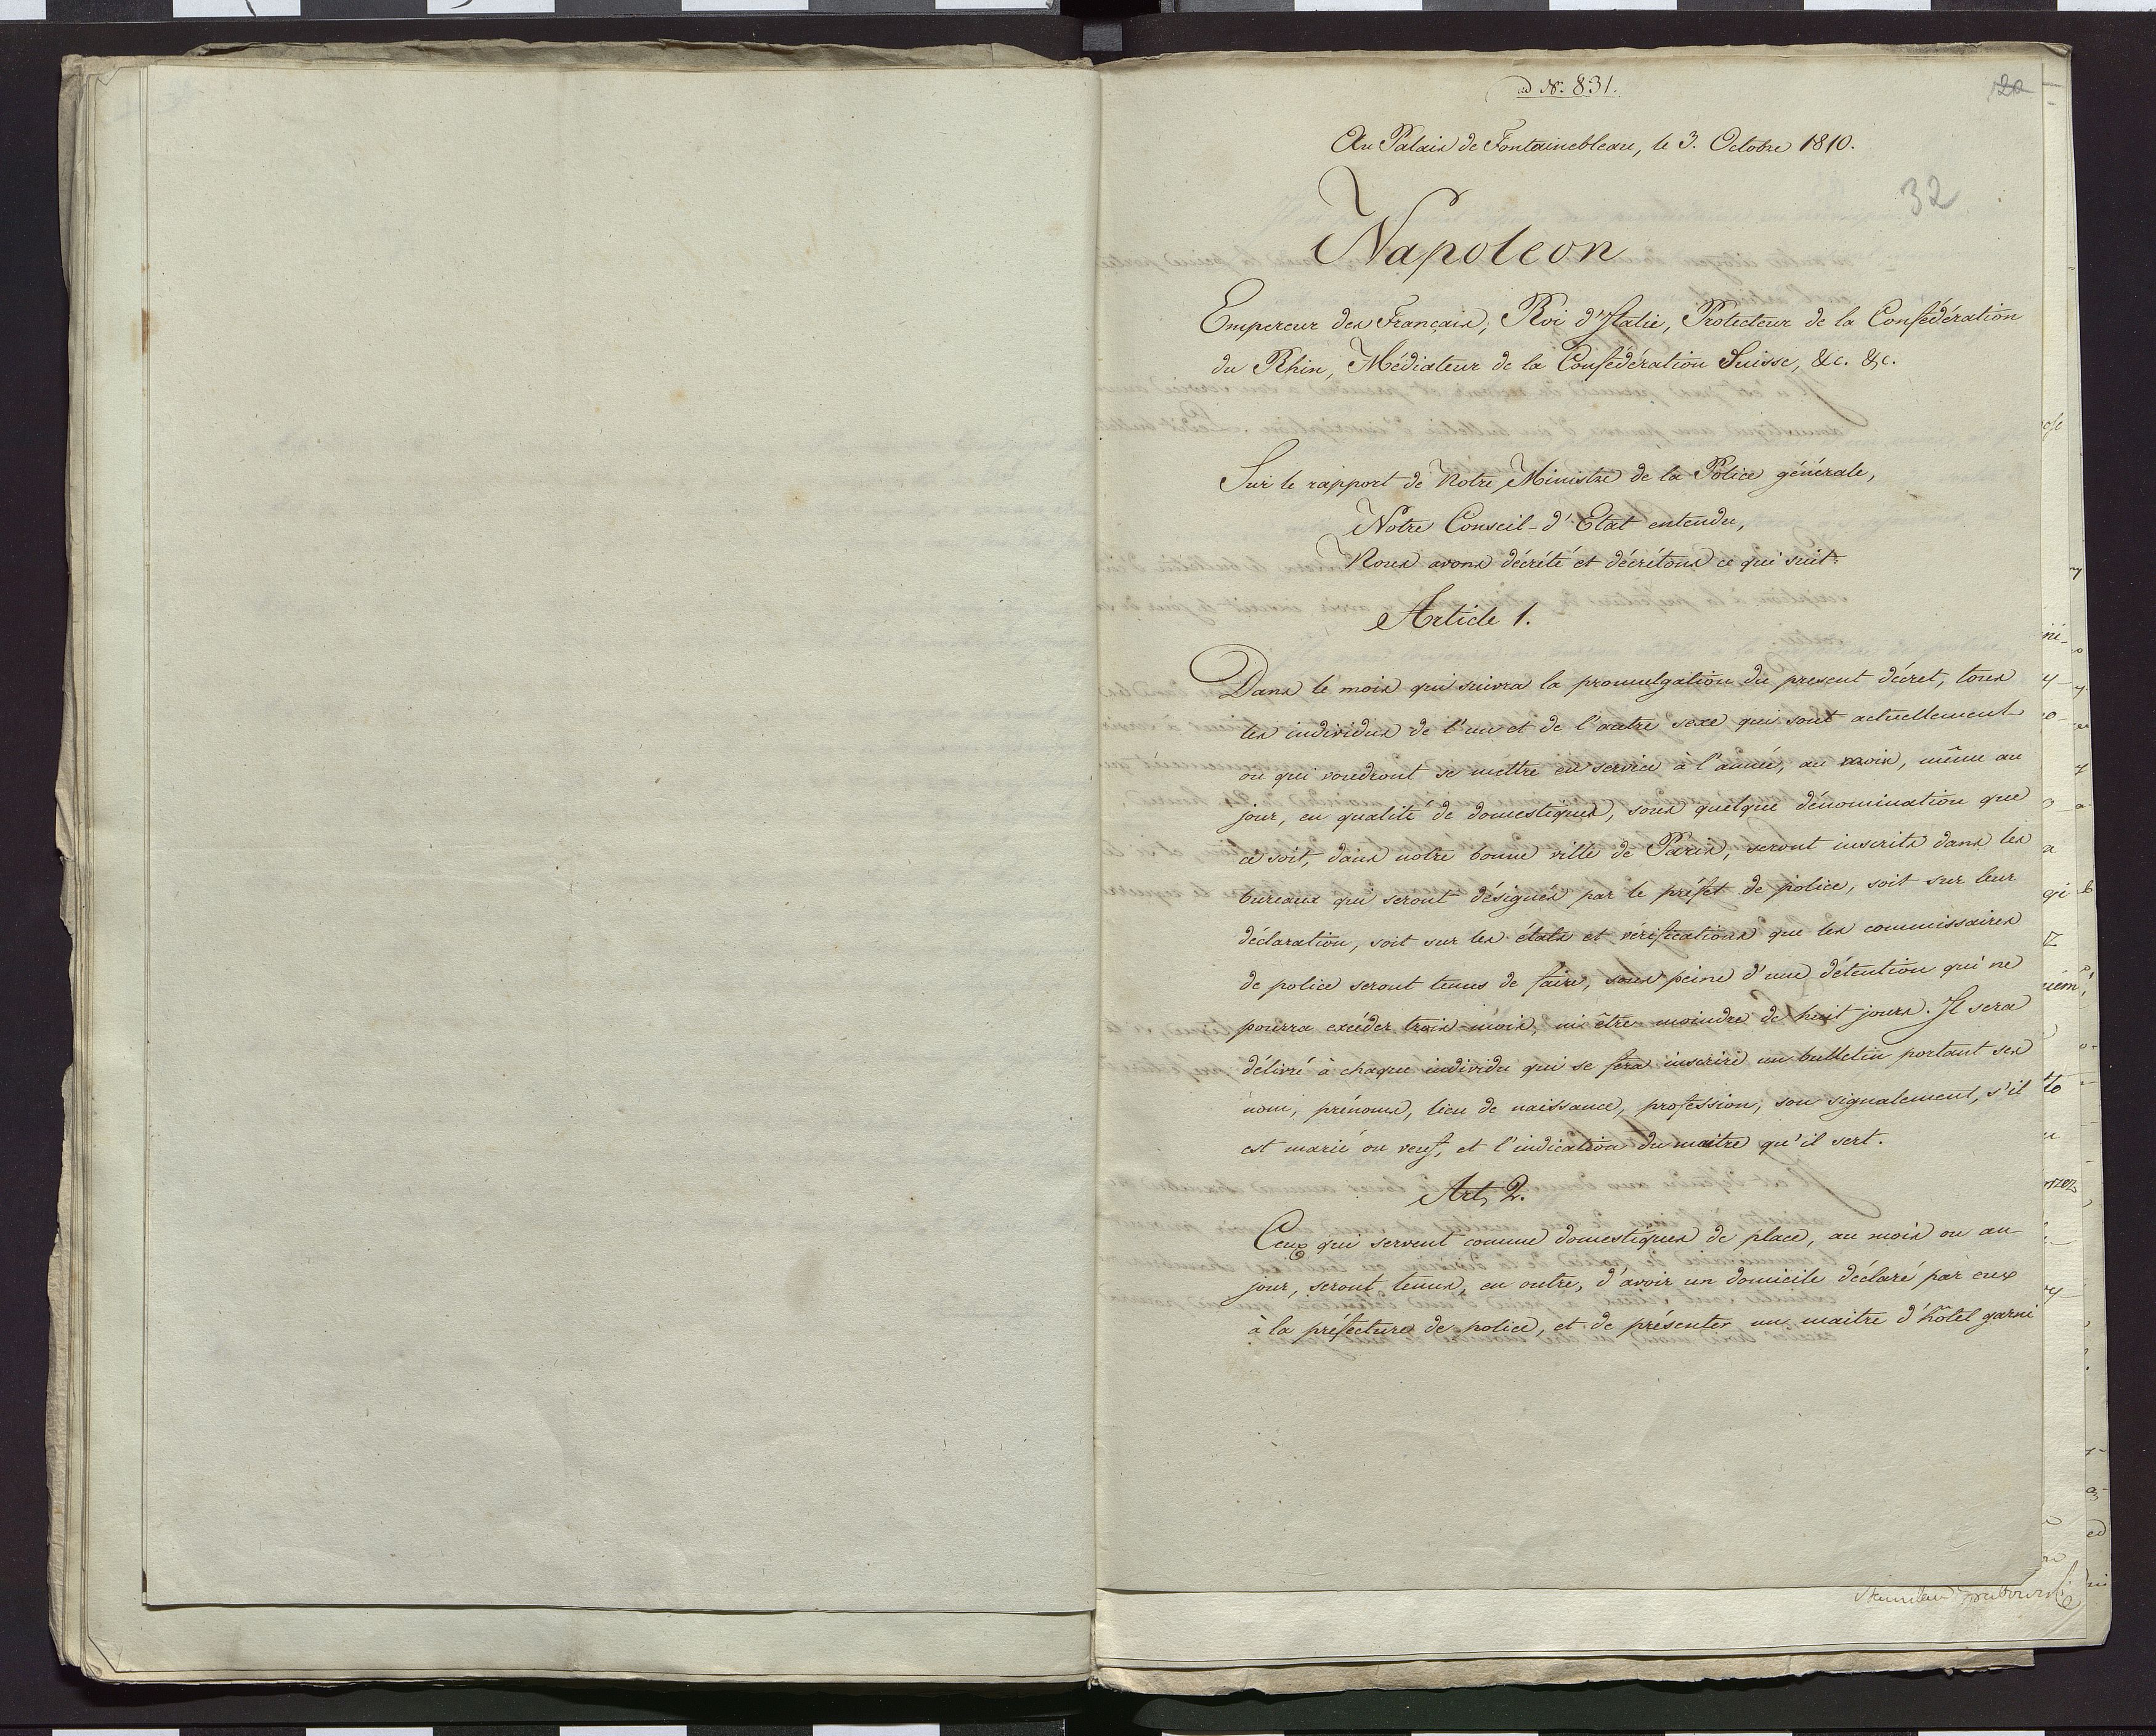 ad N. 831.
20
Au Palais de Fontainebleau, le 3. Octobre 1810.
32
Napoleon
Empereur des Français, Roi d'Italie, Protecteur de la Confédération
du Rhin, Médiateur de la Confédération Suisse, &c. &c.
Sur le rapport de Notre Ministre de la Police générale,
Notre Conseil-d'Etat entendu,
Nous avons décrété et décrétons ce qui suit:
Article 1.
Dans le mois qui suivra la promulgation du present décret, tous
les individus de l'un et de l'autre sexe qui sont actuellement
ou qui voudront se mettre en service à l'année, au mois, même au
jour, en qualité de domestiques, sous quelque dénomination que
ce soit, dans notre bonne ville de Paris, seront inscrits dans les
bureaux qui seront désignés par le préfet de police, soit sur leur
déclaration, soit sur les états et vérifications que les commissaires
de police seront tenus de faire, sous peine d'une détention qui ne
pourra excéder trois mois, ni être moindre de huit jours. Il sera
délivré à chaque individu qui se fera inscrire un bulletin portant ses
nom, prénoms, lieu de naissance, profession, son signalement, s'il
est marié ou veuf, et l'indication du maitre qu'il sert.
Art. 2.
Ceux qui servent comme domestiques de place, au mois ou au
jour, seront tenus, en outre, d'avoir un domicile déclaré par eux
à la préfecture de police, et de présenter un maitre d'hôtel garni